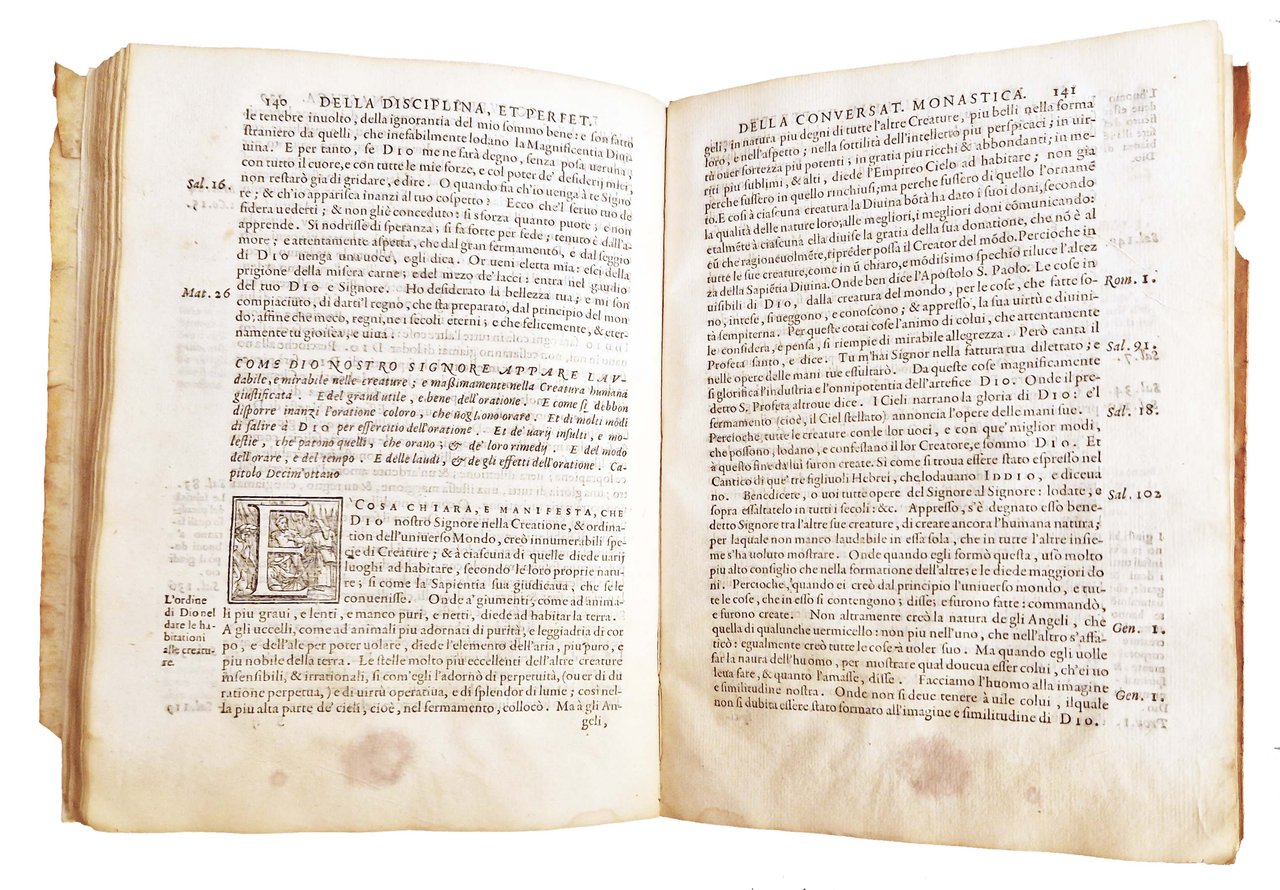 140 DELLA DISCIPLINA, ET PERFET.
le tenebre inuolto, della ignorantia del mio sommo bene: e son fatto
straniero da quelli, che inefabilmente lodano la Magnificentia Diui
uina. E per tanto, se DIO me ne farà degno, senza posa ueruna;
con tutto il cuore, e con tutte le mie forze, e col poter de' desiderij miei,
non restarò gia di gridare, e dire. O quando fia ch'io uenga à te Signo
Sal. 16.
re; & ch'io apparisca inanzi al tuo cospetto? Ecco che'l seruo tuo de
sidera uederti; & non gliè conceduto: si sforza quanto puote; e non
apprende. Si nodrisse di speranza; si fa forte per fede; tenuto è dall'a-
more; e attentamente aspetta, che dal gran fermamento, e dal seggio
di DIO uenga una uoce, e gli dica. Or ueni eletta mia: esci della
prigione della misera carne; e del mezo de' lacci: entra nel gaudio
Mat. 26
del tuo DIO e Signore. Ho desiderato la bellezza tua; e mi son
compiaciuto, di darti'l regno, che sta preparato, dal principio del mon
do; affine che meco, regni, ne i secoli eterni; e che felicemente, & eter-
namente tu gioisca, e uiua.
COME DIO NOSTRO SIGNORE APPARE LAV-
dabile, e mirabile nelle creature; e massimamente nella Creatura humana
giustificata. E del grand'utile, e bene dell'oratione. E come si debbon
disporre inanzi l'oratione coloro, che uogliono orare. Et di molti mòdi
di salire à DIO per essercitio dell'oratione. Et de' uarij insulti, e mo-
lestie, che patono quelli, che orano; & de' loro rimedij. E del modo
dell'orare, e del tempo. E delle laudi, & de gli effetti dell'oratione. Ca-
pitolo Decim'ottauo
E' COSA CHIARA, E MANIFESTA, CHE
DIO nostro Signore nella Creatione, & ordina-
tion dell'uniuerso Mondo, creò innumerabili spe-
cie di Creature; & à ciascuna di quelle diede uarij
luoghi ad habitare, secondo le loro proprie natu-
re; si come la Sapientia sua giudicaua, che se le
conuenisse. Onde a' giumenti; come ad anima-
L'ordine
di Dio nel
dare le ha-
bitationi
alle creatu-
re.
li piu graui, e lenti, e manco puri, e netti, diede ad habitar la terra.
A gli uccelli, come ad animali piu adornati di purità, e leggiadria di cor
po, e dell'ale per poter uolare, diede l'elemento dell'aria, piu puro, e
piu nobile della terra. Le stelle molto piu eccellenti dell'altre creature
insensibili, & irrationali, si com'egli l'adornò di perpetuità, (ouer di du
ratione perpetua,) e di uirtù operatiua, e di splendor di lume; così nel-
la piu alta parte de' cieli, cioè, nel fermamento, collocò. Ma à gli An-
geli,
DELLA CONVERSAT. MONASTICA. 141
geli, in natura piu degni di tutte l'altre Creature, piu belli nella forma
loro, e nell'aspetto; nella sottilità dell'intelletto piu perspicaci; in uir-
tù ouer fortezza piu potenti; in gratia piu ricchi & abbondanti; in me-
riti piu sublimi, & alti, diede l'Empireo Cielo ad habitare; non gia
perche fussero in quello rinchiusi; ma perche fussero di quello l'orname̅
to. E così à ciascuna creatura la Diuina bo̅tà ha dato i suoi doni, secondo
la qualità delle nature loro; alle megliori, i megliori doni comunicando:
e talme̅te à ciascuna ella diuise la gratia della sua donatione, che no̅ è al
cu̅ che ragioneuolme̅te, ripre̅der possa il Creator del mo̅do. Percioche in
tutte le sue creature, come in u̅ chiaro, e mo̅dissimo spechio riluce l'altez
za della Sapie̅tia Diuina. Onde ben dice l'Apostolo S. Paolo. Le cose in
Rom. 1.
uisibili di DIO, dalla creatura del mondo, per le cose, che fatte so-
no, intese, si ueggono, e conoscono; & appresso, la sua uirtù e diuini-
tà sempiterna. Per queste cotai cose l'animo di colui, che attentamente
le considera, e pensa, si riempie di mirabile allegrezza. Però canta il
Sal. 91.
Profeta santo, e dice. Tu m'hai Signor nella fattura tua dilettato; e
nelle opere delle mani tue essultarò. Da queste cose magnificamente
si glorifica l'industria e l'onnipotentia dell'artefice DIO. Onde il pre-
detto S. Profeta altroue dice. I Cieli narrano la gloria di DIO: e'l
Sal. 18.
fermamento (cioè, il Ciel stellato) annoncia l'opere delle mani sue.
Percioche, tutte le creature con le lor uoci, e con que' miglior modi,
che possono, lodano, e confessano il lor Creatore, e sommo DIO. Et
à questo fine da lui furon create. Si come si troua essere stato espresso nel
Cantico di que' tre figliuoli Hebrei, che lodauano IDDIO, e diceua
no. Benedicete, o uoi tutte opere del Signore al Signore: lodate, e
Sal. 102
sopra essaltatelo in tutti i secoli: &c. Appresso, s'è degnato esso bene-
detto Signore tra l'altre sue creature, di creare ancora l'humana natura;
per laquale non manco laudabile in essa sola, che in tutte l'altre insie-
me s'ha uoluto mostrare. Onde quando egli formò questa, usò molto
piu alto consiglio che nella formatione dell'altre; e le diede maggiori do
ni. Percioche, quando ei creò dal principio l'uniuerso mondo, e tut-
te le cose, che in esso si contengono; disse; e furono fatte: commandò,
e furono create. Non altramente creò la natura de gli Angeli, che
Gen. 1.
quella di qualunche uermicello: non piu nell'uno, che nell'altro s'affa-
ticò: egualmente creò tutte le cose à uoler suo. Ma quando egli uolle
far la naura dell'huomo, per mostrare qual doueua esser colui, ch'ei uo
leua fare, & quanto l'amasse, disse. Facciamo l'huomo alla imagine
Gen. 1.
e similitudine nostra. Onde non si deue tenere à uile colui, ilquale
non si dubita essere stato formato all'imagine e similitudine di DIO.